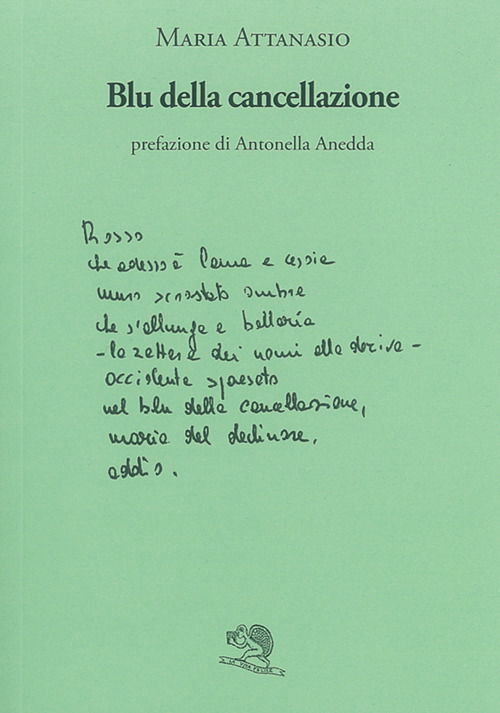 MARIA ATTANASIO
Blu della cancellazione
prefazione di Antonella Anedda
Rosso
che adesso è lama e
muro scrostato ombre
che s'allunga e
- la zattera dei nomi alla deriva -
occidente spaesato
nel blu della cancellazione,
del declinare,
addio.
LA VITA FELICE